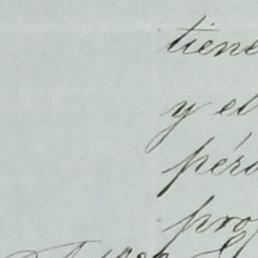 tiene
y el
pérd
pro